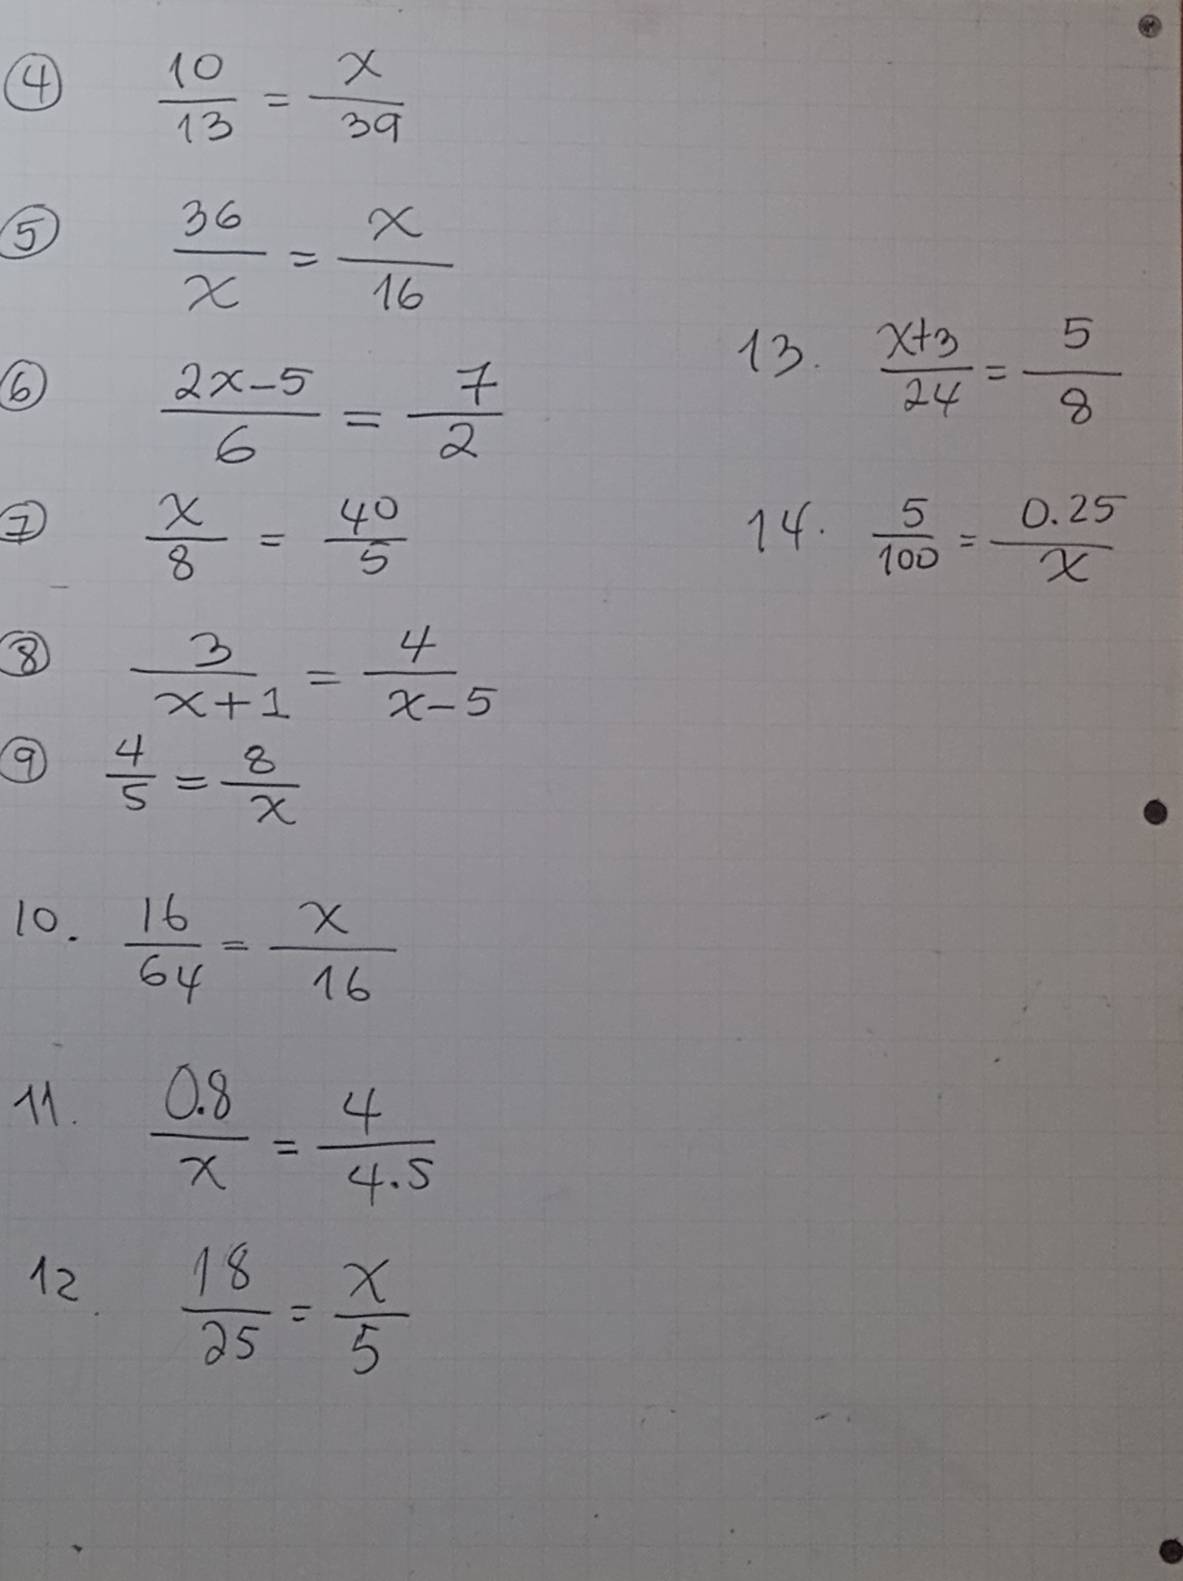 ④ 10/13 = x/39
⑤ 36/x = x/16
⑥ (2x-5)/6 = 7/2
⑦ x/8 = 40/5
⑧ 3/(x+1) = 4/(x-5)
⑨ 4/5 = 8/x
10. 16/64 = x/16
11. 0.8/x = 4/4.5
12. 18/25 = x/5
13. (x+3)/24 = 5/8
14. 5/100 = 0.25/x